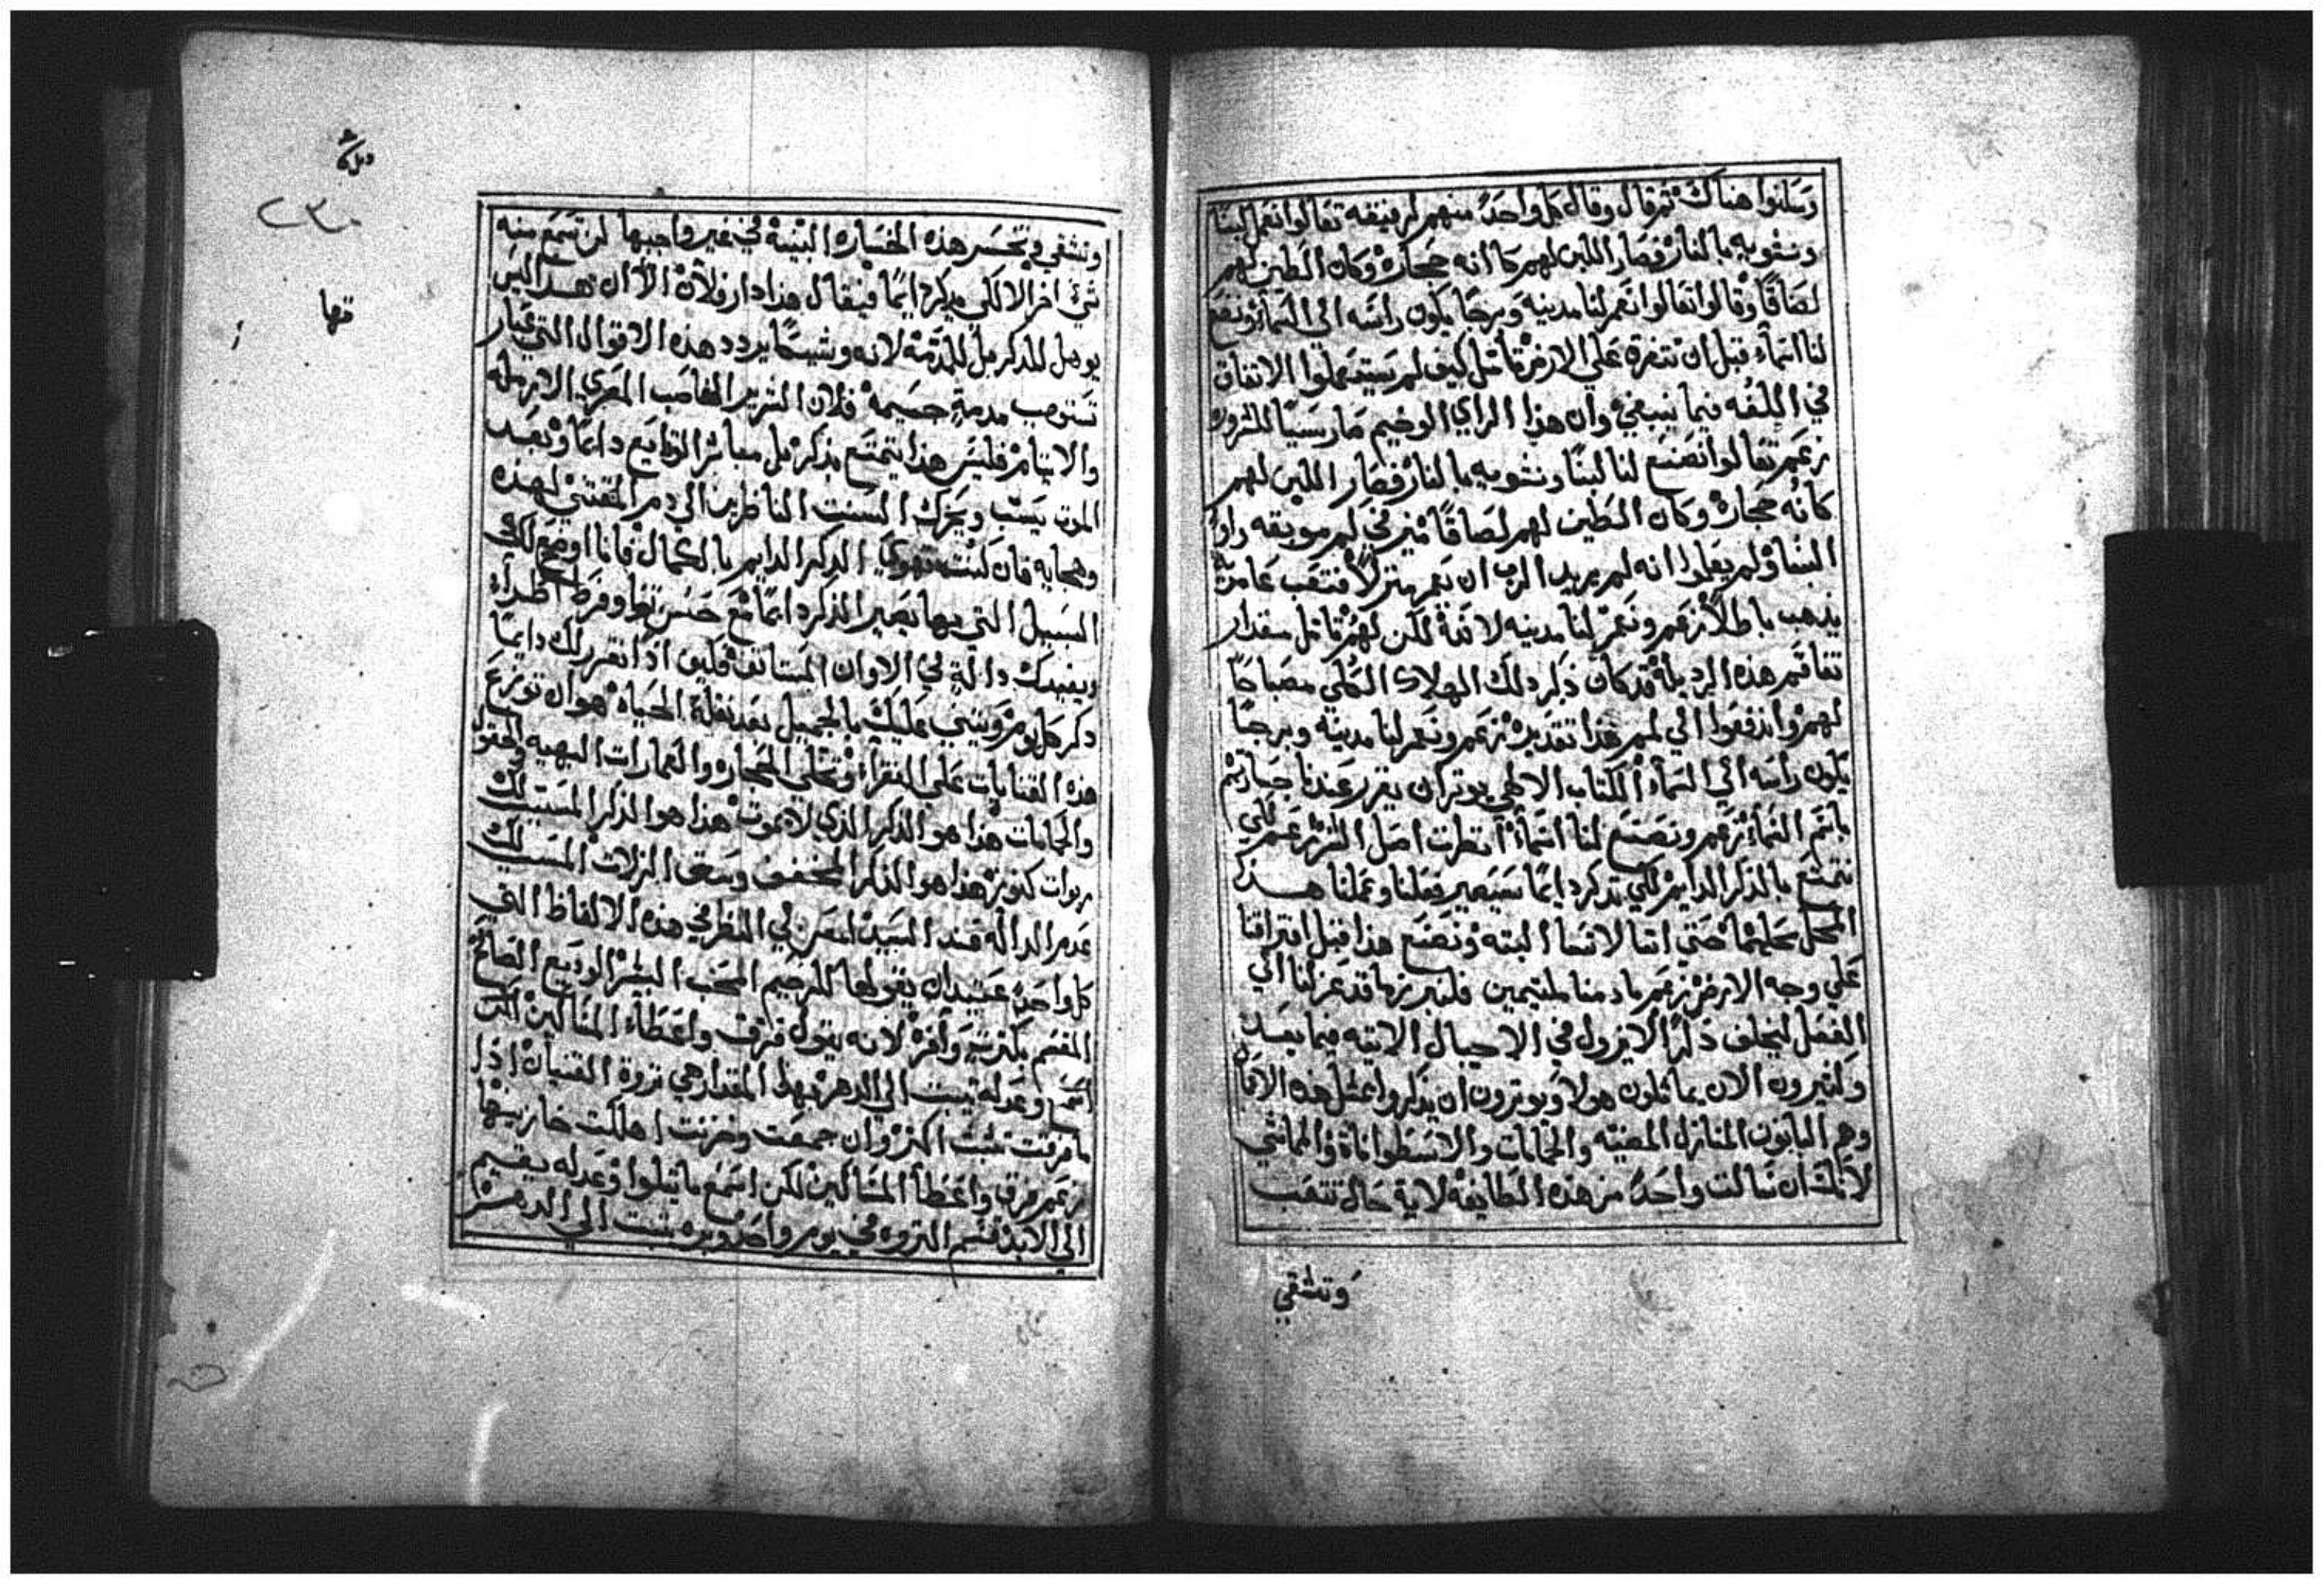 وسكنوا هناك ثم قال وقال كل واحد منهم لرفيقه تعالوا نعمل لبنًا
ونشويه بالنار فصار اللبن لهم كانه حجاره وكان الطين لهم
لصاقًا وقالوا تعالوا نعمر لنا مدينه وبرجًا يكون راسه الي السماء ونصنع
لنا اسماء قبل ان نتفرق علي الارض تامل كيف لم يستعملوا الاتفاق
في اللغه فيما ينبغي وان هذا الراي الوخيم صار سببًا للشرور
زعم تعالوا نصنع لنا لبنًا ونشويه بالنار فصار اللبن لهم
كانه حجاره وكان الطين لهم لصاقًا
البناء ولم يعلموا انه لم يريد الرب ان يعمر منزلاً فتعب عامريه
يذهب باطلاً زعم ونعمر لنا مدينه لانه لكن لهم تامل مقدار
تفاقم هذه الرديله قد كان ذكر ذلك الهلاك الكلي مصباحًا
لهم واندفعوا الي غذا تقديره زعم ونعمر لنا مدينه وبرجًا
يكون راسه الي السماء الكتاب الالهي يوثر ان يقرر عندنا جسارتهم
باسم السماء زعم ونصنع لنا اسماء انظرت اصل الشر زعم لكي
نتمتع بالذكر الدايم لكي نذكر دايمًا سيصير فعلنا وعملنا هذكر
المحل عظيمًا حتي اننا لا ننسا البته ونصنع هذا قبل افتراقنا
علي وجه الارض زعم ما دمنا ملتيمين فلنبرزها قد عزلنا الي
الفعل لنخلف ذكرًا لا يزول في الاجيال الاتيه فيما بعد
وكثيرون الان يماثلون هولاء ويوثرون ان يذكروا بمثل هذه الافعال
وهم البانون المنازل المغنيه والحمامات والاسطوانات والمماشي
لانك ان سالت واحدًا من هذه الطايفه لاية حال تتعب
وتشقي
ونشقي وتخسر هذه الخساره البينه في غير واجبها لن تسمع منه
شي اخر الا لكي يذكر دايمًا فيقال هذا دار فلان الا ان هذا ليس
يوهل للذكر بل للمذمه لانه وشيكًا يردد هذه الاقوال التي عيار
تستوجب مذمة جسيمه فلان الشرير الغاصب المعري الارمله
والايتام فليس هذا يتمتع بذكر بل معاثر الوقايع دايمًا وبعد
الموت يسب ويحرك السنت الناظرين الي ذم المقتني لهذه
وهجايه فان كنت تهوي الذكر الدايم بالكمال فانا اوضح لك
السبيل التي بها تصير الذكر دايمًا مع حسن ثنا وفرط
ويفيدك دالة في الاوان المستانف فكيف اذًا نقرر لك دايمًا
ذكر كل يوم ويثني عليك بالجميل بعد نقلة الحياه هو ان توزع
هذه القنايات علي الفقراء وتخلي الحجاره والعمارات البهيه والحقول
والحمامات هذا هو الذكر الذي لا يموت هذا هو الذكر المسبب لك
ربوات كنوز هذا هو الذكر المخفف وسق الزلات المسبب لك
عدم الداله عند السيد امعن لي النظر في هذه الالفاظ التي
كل واحد عتيد ان يقولها للرحيم المحب البشر الوديع الصالح
المقسم بكثرت وافره لانه يقول فرق واعطاء المساكين
وعدله يثبت الي الدهر فبهذا المقدار هي ثروة القنيات اذ ا
ما فرقت تثبت اكثر وان جمعت وخزنت اهلكت خازنيها
زعم فرق واعطاء المساكين لكن اسمع ما يتلوا وعدله يقيم
الي الابد قسم الثروه في يوم واحد وبره يثبت الي الدهر
٢٣٠